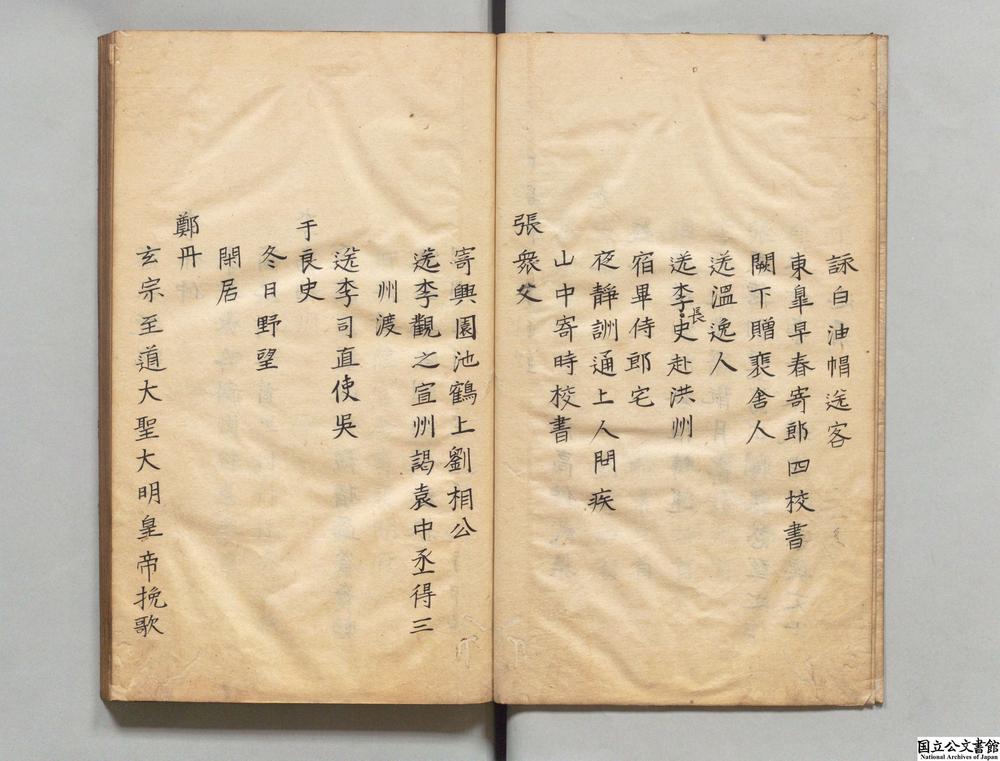 詠白油帽送客
東皐早春寄郎四校書
闕下贈裴舍人
送溫逸人
送李長史赴洪州
宿畢侍郎宅
夜靜詶通上人問疾
山中寄時校書
張衆父
寄興園池鶴上劉相公
送李觀之宣州謁袁中丞得三
州渡
送李司直使吳
于良史
冬日野望
閑居
鄭丹
玄宗至道大聖大明皇帝挽歌
国立公文書館
National Archives of Japan